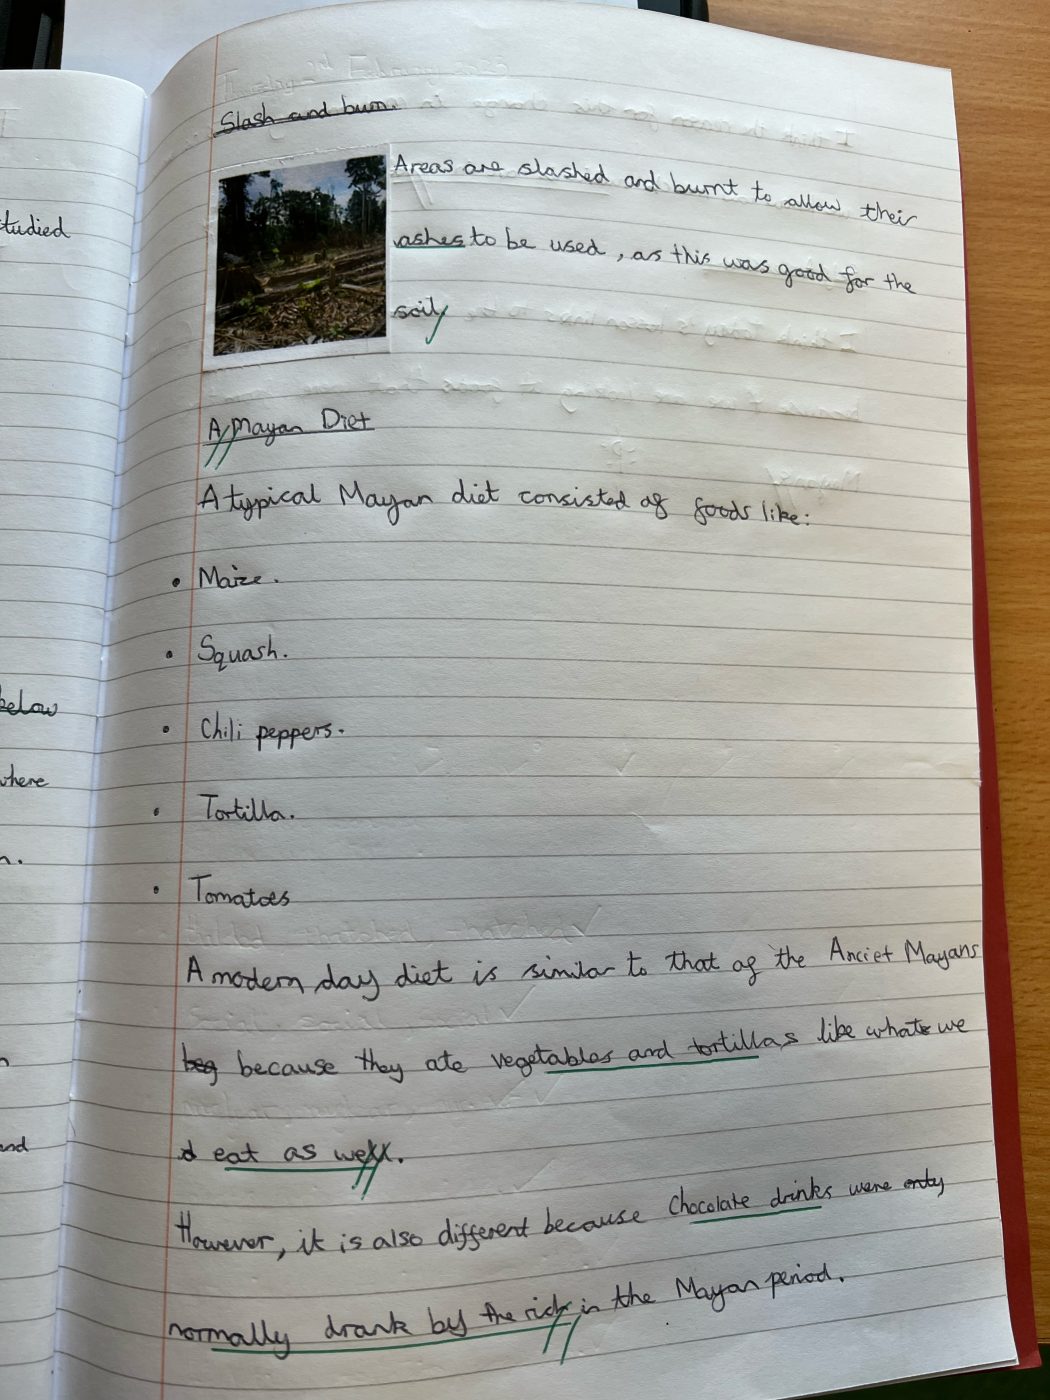 Slash and burn.
Areas are slashed and burnt to allow their
ashes to be used, as this was good for the
soil
A Mayan Diet
A typical Mayan diet consisted of foods like:
• Maize.
• Squash.
• Chili peppers.
• Tortilla.
• Tomatoes
A modern day diet is similar to that of the Anciet Mayans
beg because they ate vegetables and tortillas like whats we
d eat as well.
However, it is also different because chocolate drinks were only
normally drank by the rich in the Mayan period.
tudied
below
where
n.
n
and